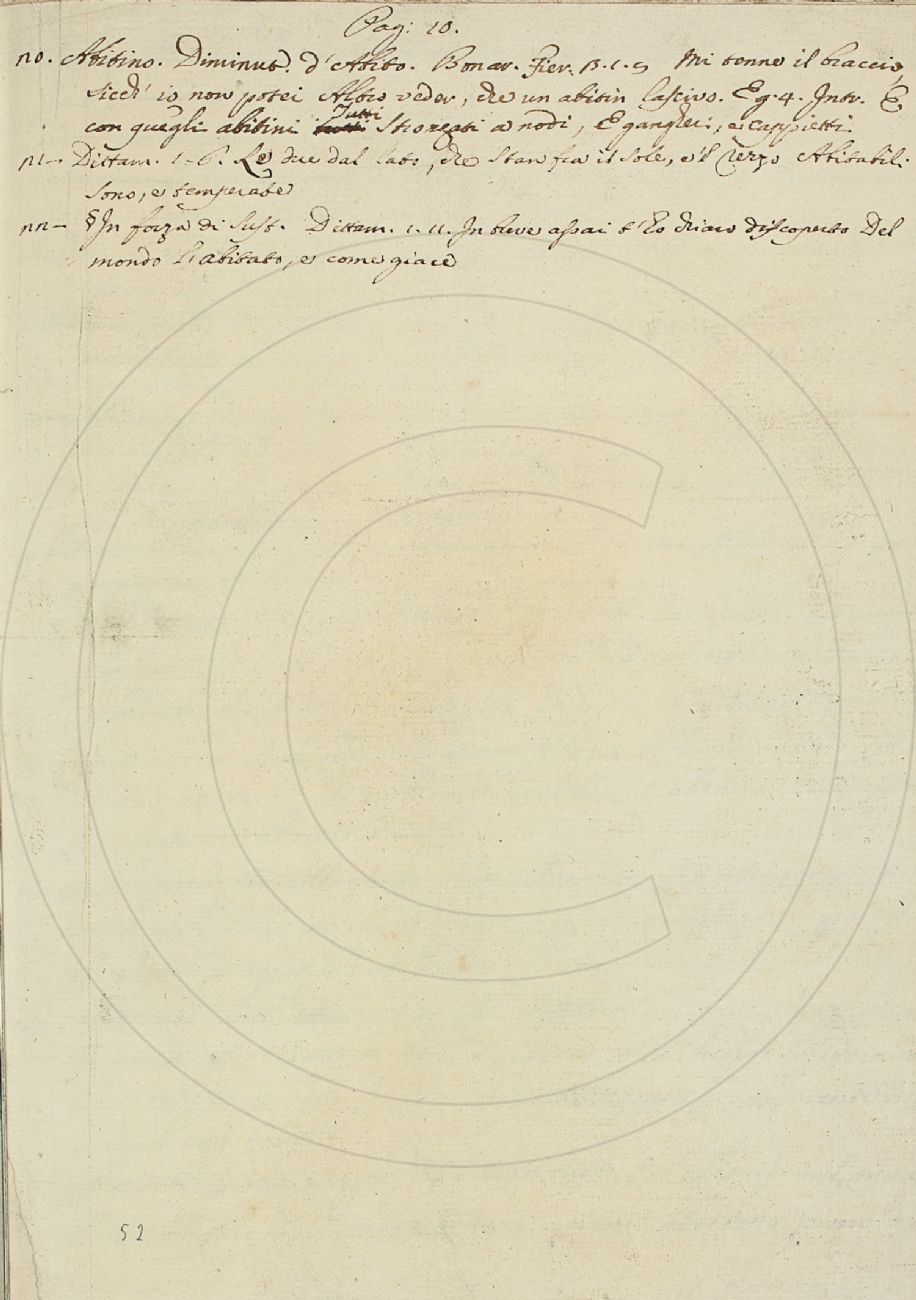 Pag: 10.
no. Abitino. Diminut. d'Abito. Bonar. Fier. 3.1.9 Mi tenne il braccio,
Sicch' io non potei Altro veder, che un abitin lascivo. E g. 4. Intr. E
con quegli abitini Tutti Stroncati a nodi, E gangheri, e cappietti.
n1– Dittam. 1-6. Le due dal lato, che stan fra il Sole, e'l Terzo Abitabil.
sono, e temperate
nn– § In forza di Sust. Dittam. 1.11. In breve assai t'ho chiaro discoperto Del
mondo l'abitato, e come giace
52